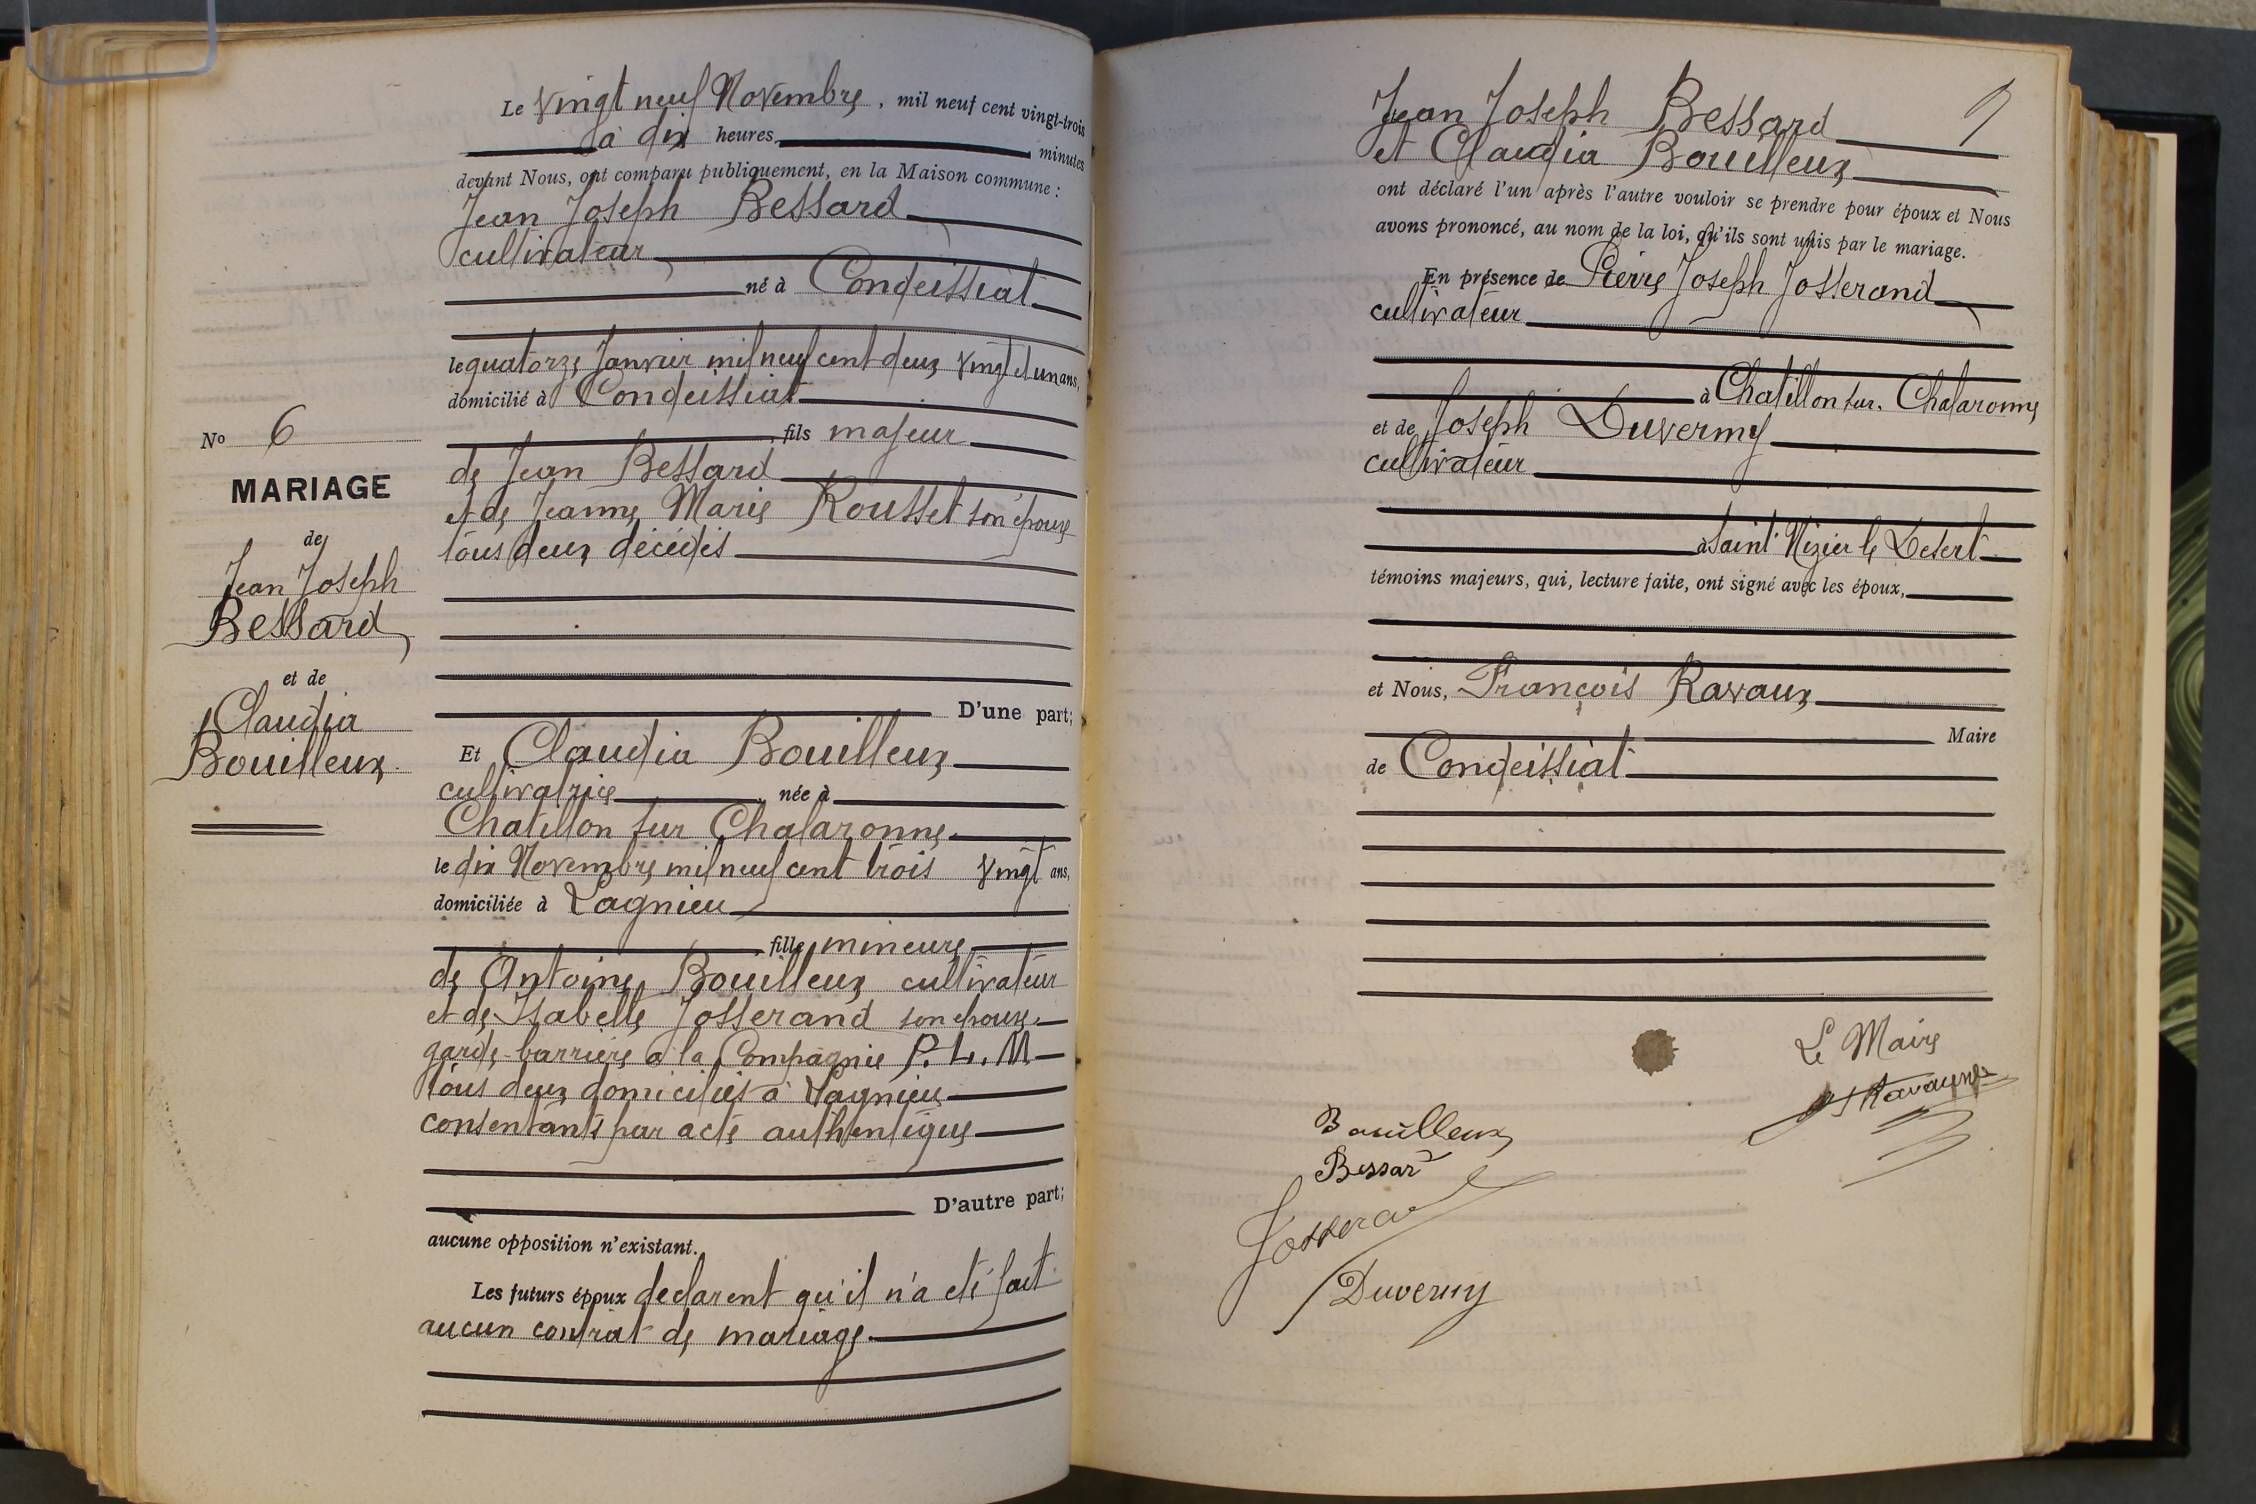 Le vingt neuf Novembre, mil neuf cent vingt-trois
à dix heures, minutes
devant Nous, ont comparu publiquement, en la Maison commune :
Jean Joseph Bessard
cultivateur
né à Condeissiat
le quatorze Janvier mil neuf cent deux vingt et un ans,
domicilié à Condeissiat
, fils majeur
de Jean Bessard
et de Jeanne Marie Rousset son épouse
tous deux décédés
D'une part;
Et Claudia Bouilleux
cultivatrice, née à
Chatillon sur Chalaronne
le dix Novembre mil neuf cent trois vingt ans,
domiciliée à Lagnieu
, fille mineure
de Antoine Bouilleux cultivateur
et de Isabelle Josserand son epouse
garde-barrière à la Compagnie P. L. M
tous deux domiciliés à Lagnieu
consentants par acte authentique
D'autre part;
aucune opposition n'existant.
Les futurs époux declarent qu'il n'a eté fait
aucun contrat de mariage.
No 6
MARIAGE
de
Jean Joseph
Bessard
et de
Claudia
Bouilleux
Jean Joseph Bessard
et Claudia Bouilleux
ont déclaré l'un après l'autre vouloir se prendre pour époux et Nous
avons prononcé, au nom de la loi, qu'ils sont unis par le mariage.
En présence de Pierre Joseph Josserand
cultivateur
à Chatillon sur Chalaronne
et de Joseph Duverny
cultivateur
à Saint Nizier le Desert
témoins majeurs, qui, lecture faite, ont signé avec les époux,
et Nous, François Ravaux
Maire
de Condeissiat
Le Maire
Bouilleux
Bessard
Duverny